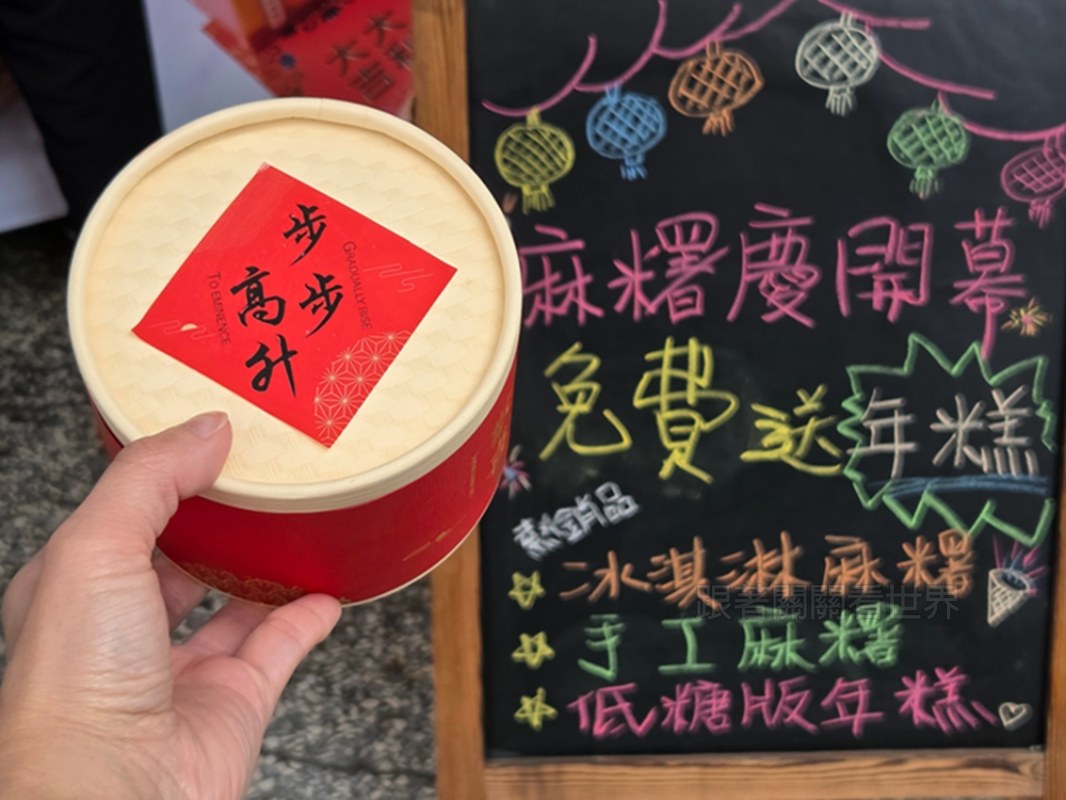 大
大
吉
步步
高升
GRADUALLY RISE
TO EMINENCE
麻糬慶開幕
免費送年糕
熱銷品
冰淇淋麻糬
手工麻糬
低糖版年糕
跟著關關看世界